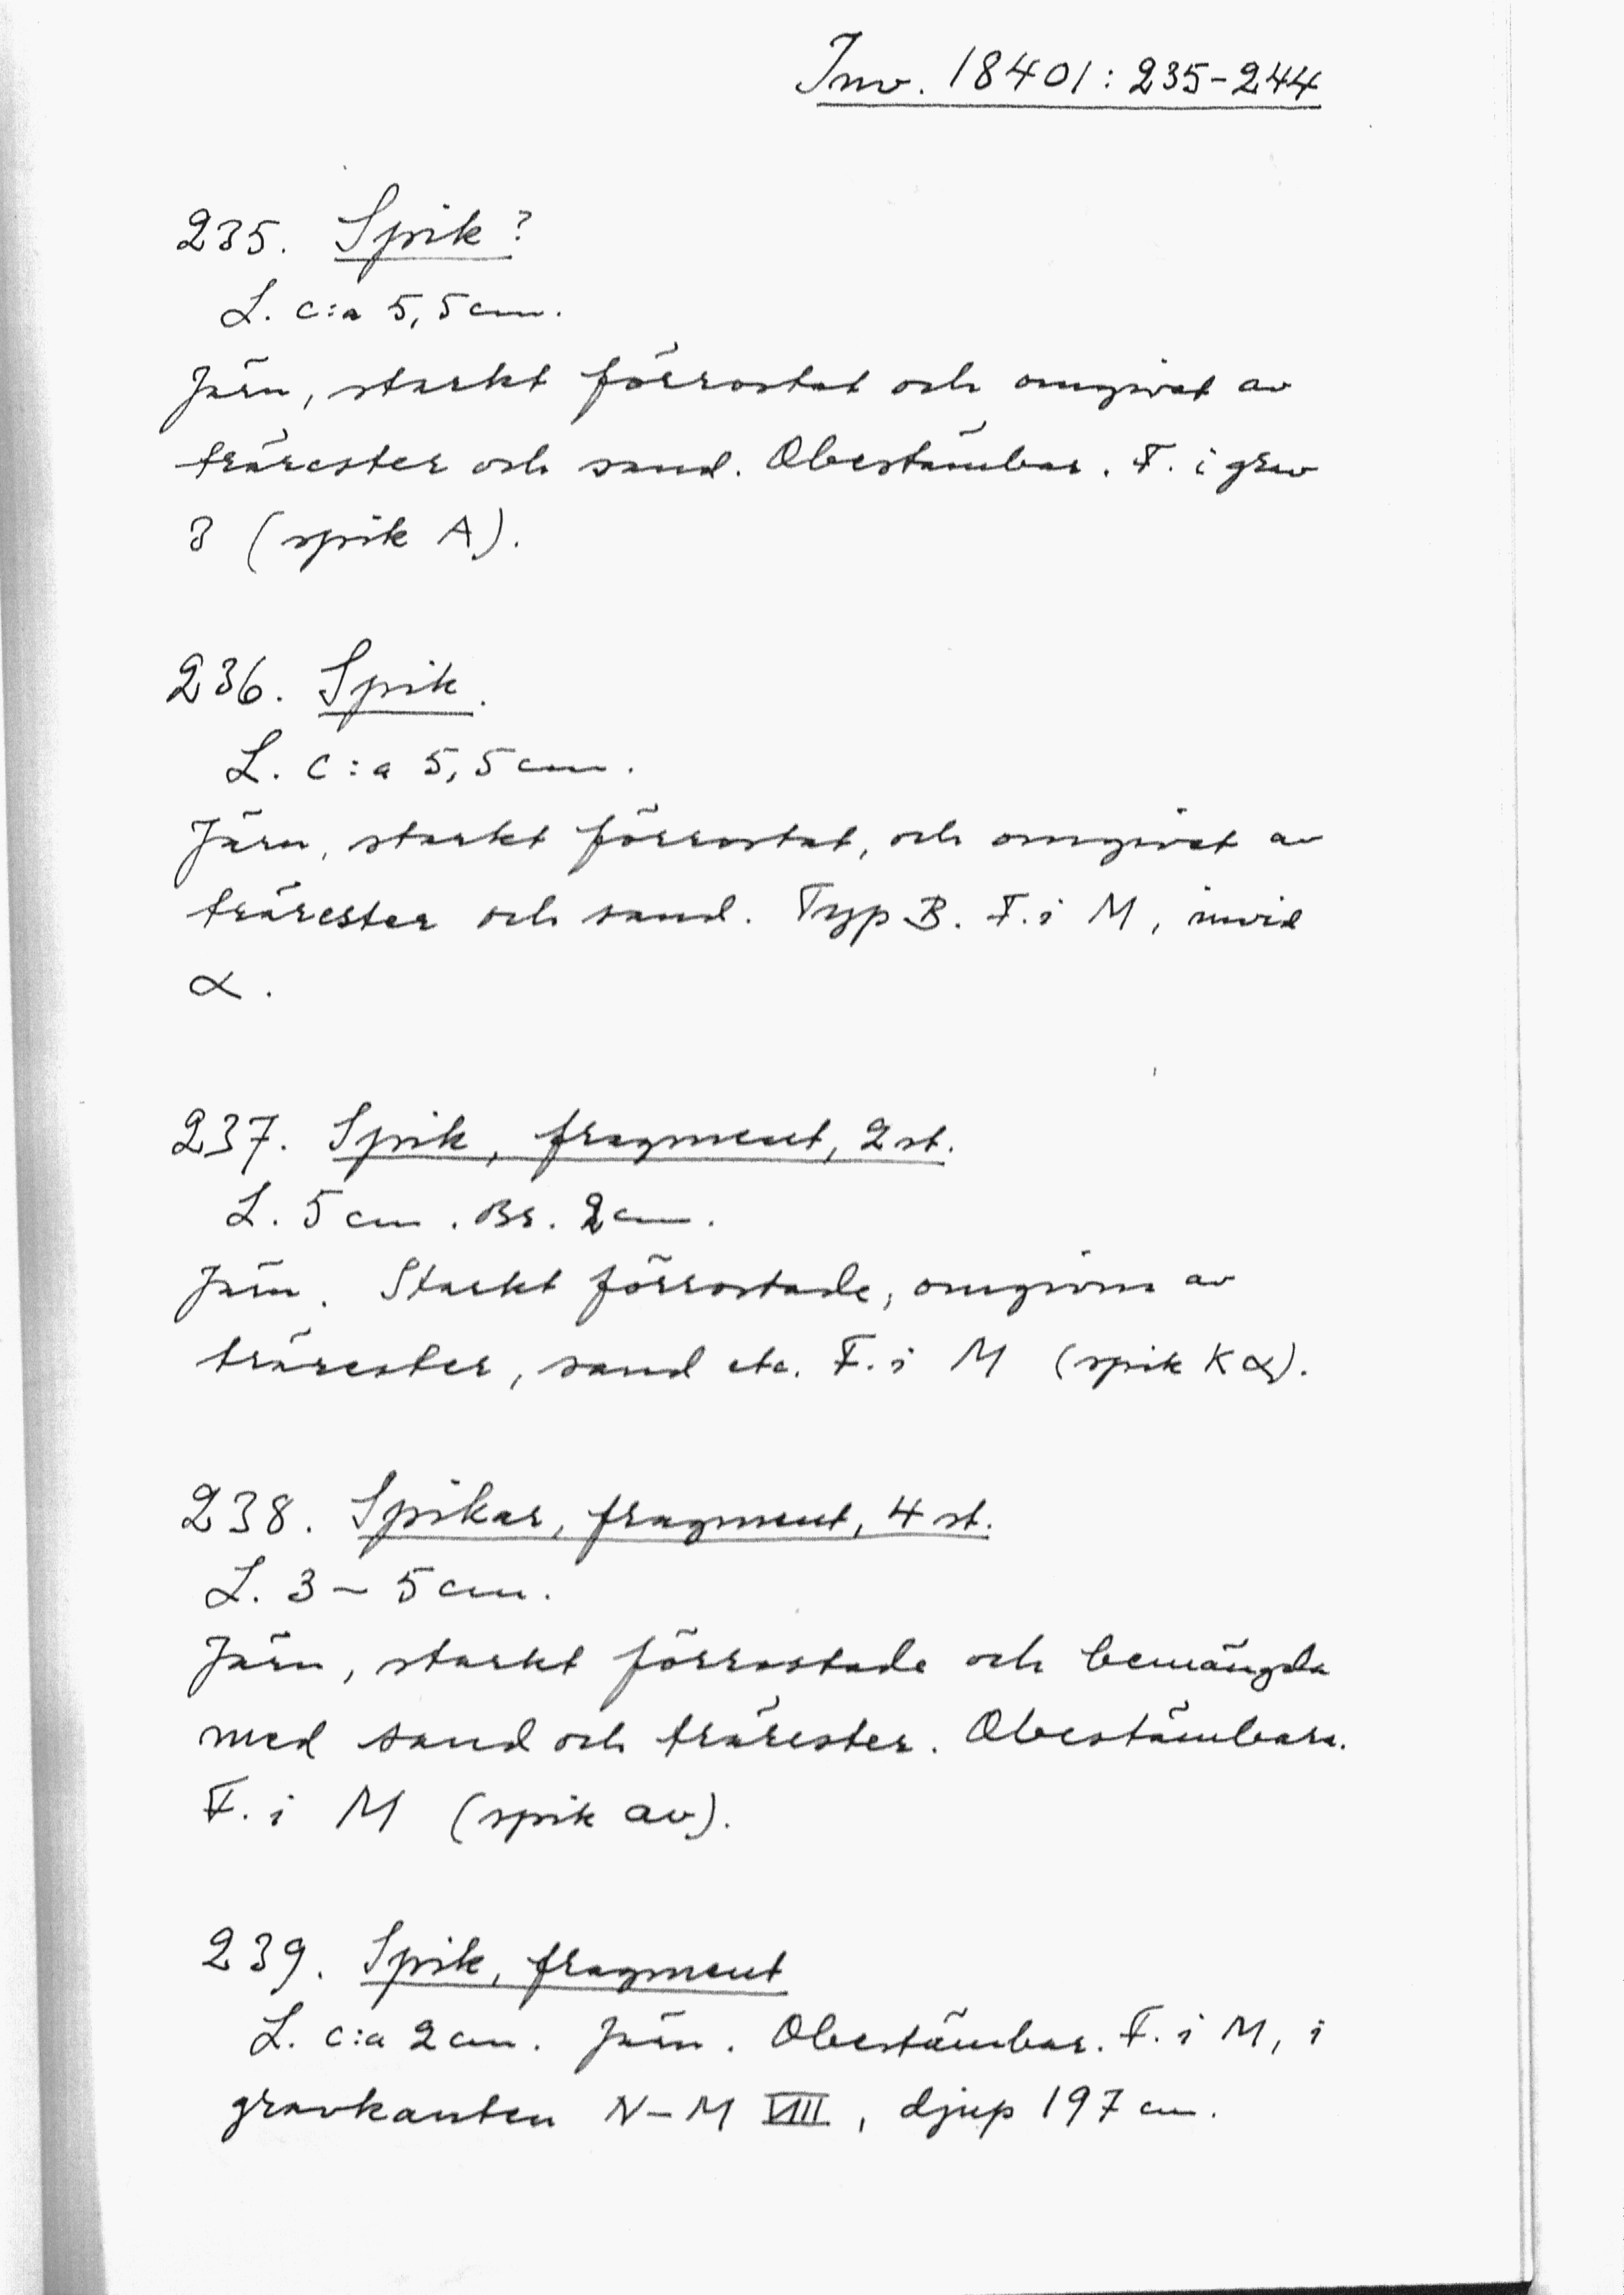 Inv. 18401:235-244
235. Spik?
L. c:a 5,5 cm.
Järn, starkt förrostat och omgivet av
trärester och sand. Obestämbar. F. i grav
3 (spik A).
236. Spik.
L. c:a 5,5 cm.
Järn, starkt förrostat, och omgivet av
trärester och sand. Typ B. F. i M, invid
α.
237. Spik, fragment, 2 st.
L. 5 cm. Br. 2 cm.
Järn. Starkt förrostade, omgivna av
trärester, sand etc. F. i M (spik K α).
238. Spikar, fragment, 4 st.
L. 3 - 5 cm.
Järn, starkt förrostade och bemängda
med sand och trärester. Obestämbara.
F. i M (spik av).
239. Spik, fragment
L. c:a 2 cm. Järn. Obestämbar. F. i M, i
gravkanten N-M VIII, djup 197 cm.